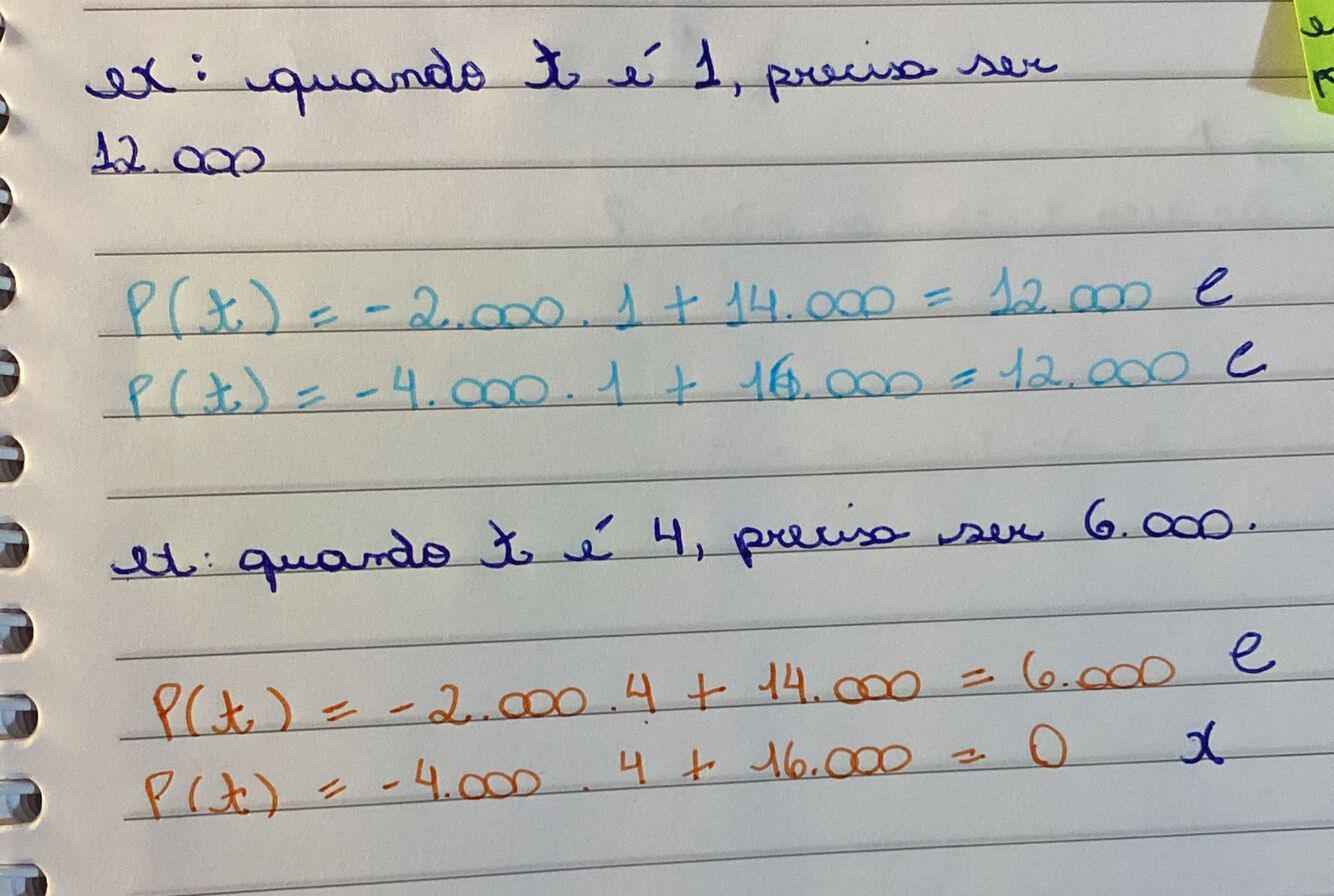 ex: quando t é 1, preciso ser
12.000
P(t) = -2.000 . 1 + 14.000 = 12.000 e
P(t) = -4.000 . 1 + 16.000 = 12.000 c
ex: quando t é 4, preciso ser 6.000.
P(t) = -2.000 . 4 + 14.000 = 6.000 e
P(t) = -4.000 . 4 + 16.000 = 0 x